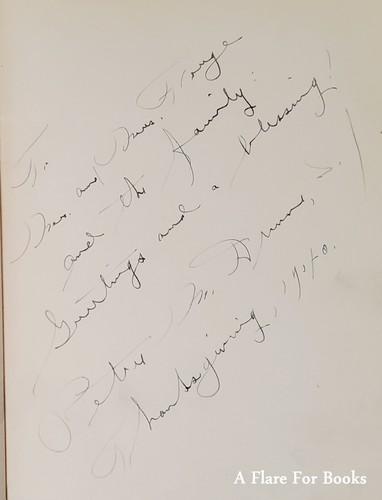 To
Mr. and Mrs. Fruge
and the family:
Greetings and a blessing!
Peter M. Dunne, S.J.
Thanksgiving, 1940.
A Flare For Books